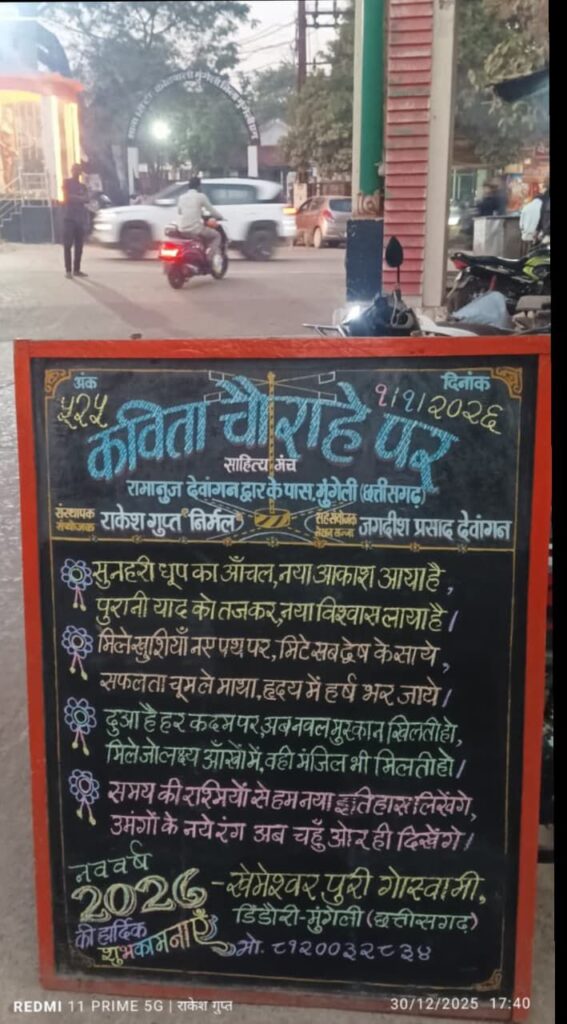 अंक
५२५
दिनांक
१/१/२०२६
कविता चौराहे पर
साहित्य मंच
रामानुज देवांगन द्वार के पास, मुंगेली (छत्तीसगढ़)
संस्थापक
संयोजक
राकेश गुप्त "निर्मल"
सहसंयोजक
जगदीश प्रसाद देवांगन
सुनहरी धूप का आँचल, नया आकाश आया है,
पुरानी याद को तजकर, नया विश्वास लाया है।
मिले खुशियाँ नए पथ पर, मिटे सब द्वेष के साये,
सफलता चूम ले माथा, हृदय में हर्ष भर जाये।
दुआ है हर कदम पर, अब नवल मुस्कान खिलती हो,
मिले जो लक्ष्य आँखों में, वही मंजिल भी मिलती हो।
समय की रश्मियों से हम नया इतिहास लिखेंगे,
उमंगों के नये रंग अब चहुँ ओर ही दिखेंगे।
नव वर्ष
2026
की हार्दिक
शुभकामनाएँ
- खेमेश्वर पुरी गोस्वामी,
डिंडौरी-मुंगेली (छत्तीसगढ़)
मो. ८१२००३२८३४
REDMI 11 PRIME 5G | राकेश गुप्त
30/12/2025 17:40